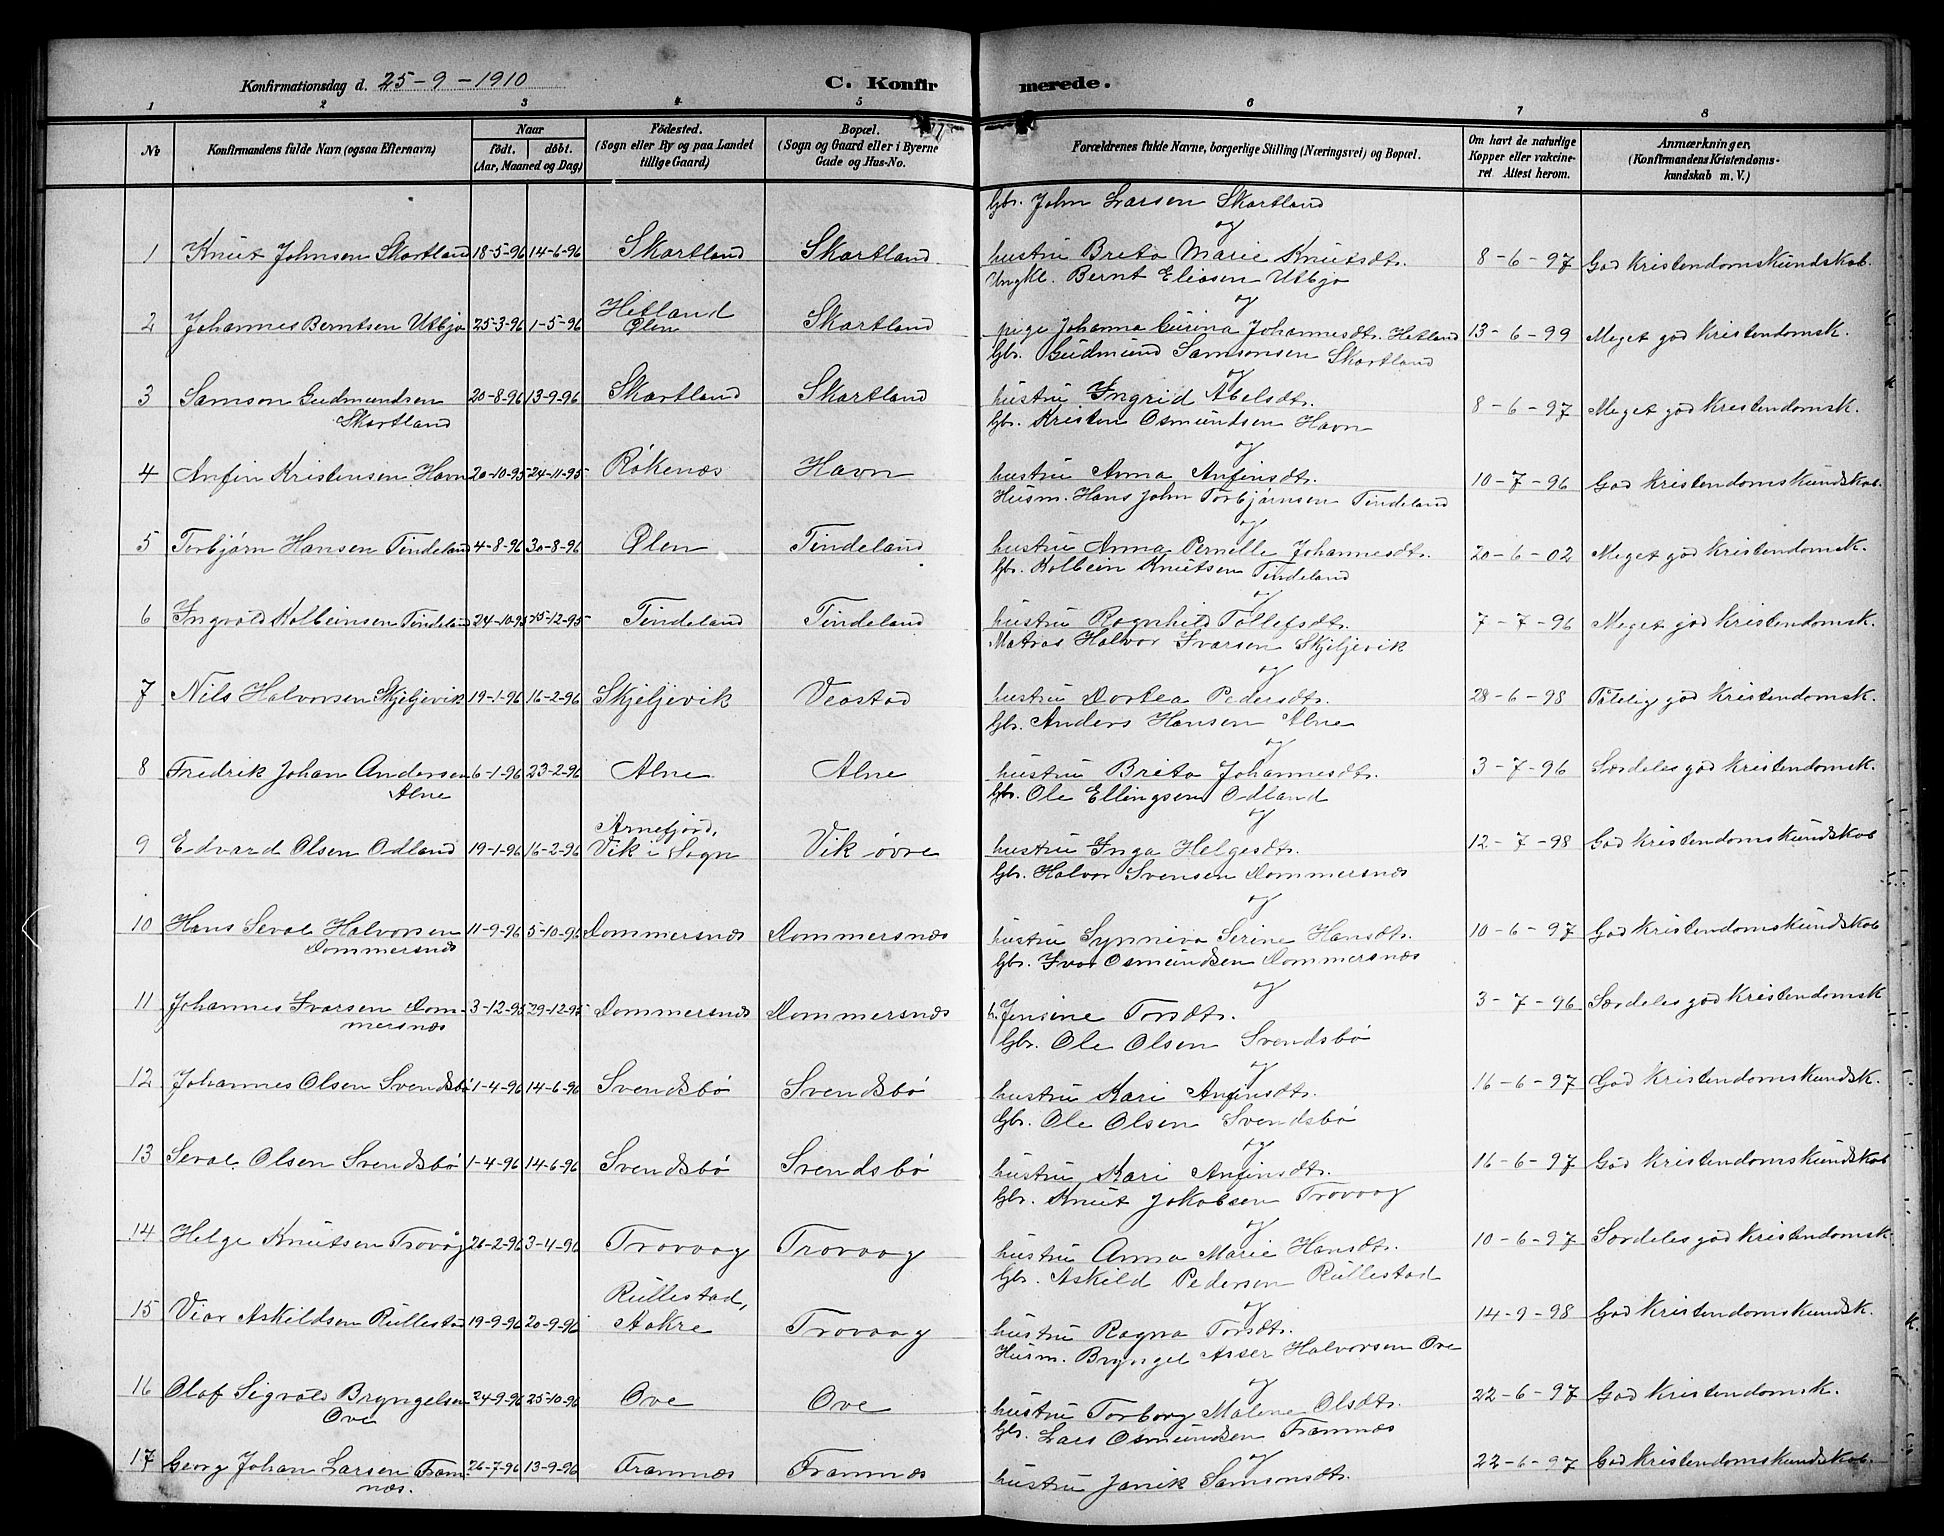 Konfirmationsdag d. 25-9-1910
C. Konfir
merede.
1 2 3 4 5 6 7 8
No
Konfirmandens fulde Navn (ogsaa Efternavn)
Naar
födt. döbt.
(Aar, Maaned og Dag)
Födested.
(Sogn eller By og paa Landet
tillige Gaard)
Bopæl.
(Sogn og Gaard eller i Byerne
Gade og Hus-No.
Forældrenes fulde Navne, borgerlige Stilling (Næringsvei) og Bopæl.
Om havt de naturlige
Kopper eller vakcine-
ret. Attest herom.
Anmærkninger.
(Konfirmandens Kristendoms-
kundskab m. V.)
Gbr. John Larsen Skartland
og
1 Knut Johnsen Skartland 18-5-96 14-6-96 Skartland Skartland hustru Brita Marie Knutsdtr. 8-6-97 God Kristendomskundskab.
Ungkl. Bernt Eliasen Utbjo
og
2 Johannes Berntsen Utbjo 25-3-96 1-5-96 Hetland Ølen Skartland pige Johanna Gurina Johannesdtr. Hetland 13-6-99 Meget god Kristendomsk.
Gbr. Gudmund Samsonsen Skartland
og
3 Samson Gudmundsen Skartland 20-8-96 13-9-96 Skartland Skartland hustru Ingrid Abelsdtr. 8-6-97 Meget god Kristendomsk.
Gbr. Kristen Osmundsen Havn
og
4 Anfin Kristensen Havn 20-10-95 24-11-95 Røkenæs Havn hustru Anna Anfinsdtr. 10-7-96 God Kristendomskundskab.
Husm. Hans John Torbjørnsen Tindeland
og
5 Torbjørn Hansen Tindeland 4-8-96 30-8-96 Ølen Tindeland hustru Anna Pernille Johannesdtr. 20-6-02 Meget god Kristendomsk.
Gbr. Kolbein Knutsen Tindeland
og
6 Ingvald Kolbeinsen Tindeland 24-10-95 25-12-95 Tindeland Tindeland hustru Ragnhild Tollefsdtr. 7-7-96 Meget god Kristendomsk.
Matros Halvor Ivarsen Skjeljevik
og
7 Nils Halvorsen Skjeljevik 19-1-96 16-2-96 Skjeljevik Veastad hustru Dortea Pedersdtr. 28-6-98 Tålelig god Kristendomsk.
Gbr. Anders Hansen Alne
og
8 Fredrik Johan Andersen Alne 6-1-96 23-2-96 Alne Alne hustru Brita Johannesdtr. 3-7-96 Særdeles god Kristendomsk.
Gbr. Ole Ellingsen Odland
og
9 Edvard Olsen Odland 19-1-96 16-2-96 Arnefjord, Vik i Sogn Vik øvre hustru Inga Helgesdtr. 12-7-98 God Kristendomskundskab
Gbr. Halvor Svensen Dommersnæs
og
10 Hans Seval Halvorsen Dommersnæs 11-9-96 5-10-96 Dommersnæs Dommersnæs hustru Synneva Serine Hansdtr. 10-6-97 God Kristendomskundskab
Gbr. Ivar Osmundsen Dommersnæs
og
11 Johannes Ivarsen Dom-
mersnæs 3-12-95 29-12-95 Dommersnæs Dommersnæs h. Jensine Torsdtr. 3-7-96 Særdeles god Kristendomsk
Gbr. Ole Olsen Svendsbø
og
12 Johannes Olsen Svendsbø 1-4-96 14-6-96 Svendsbø Svendsbø hustru Kari Anfinsdtr. 16-6-97 God Kristendomskundsk.
Gbr. Ole Olsen Svendsbø
og
13 Seval Olsen Svendsbø 1-4-96 14-6-96 Svendsbø Svendsbø hustru Kari Anfinsdtr. 16-6-97 God Kristendomskundskab
Gbr. Knut Jakobsen Trovaag
og
14 Helge Knutsen Trovåg 26-2-96 3-4-96 Trovaag Trovaag hustru Anna Marie Hansdtr. 10-6-97 Særdeles god Kristendomsk.
Gbr. Askild Pedersen Rullestad
og
15 Viar Askildsen Rullestad 19-9-96 20-9-96 Rullestad, Aakre Trovaag hustru Ragna Torsdtr. 14-9-98 God Kristendomskundsk.
Husm. Bryngel Asser Halvorsen Ove
og
16 Olaf Sigvald Bryngelsen Ove 24-9-96 25-10-96 Ove Ove hustru Torborg Malene Olsdtr. 22-6-97 God Kristendomsk.
Gbr. Lars Osmundsen Framnæs
og
17 Georg Johan Larsen Fram-
næs. 26-7-96 13-9-96 Framnæs Framnæs hustru Janik Samsonsdtr. 22-6-97 God Kristendomskundskab.